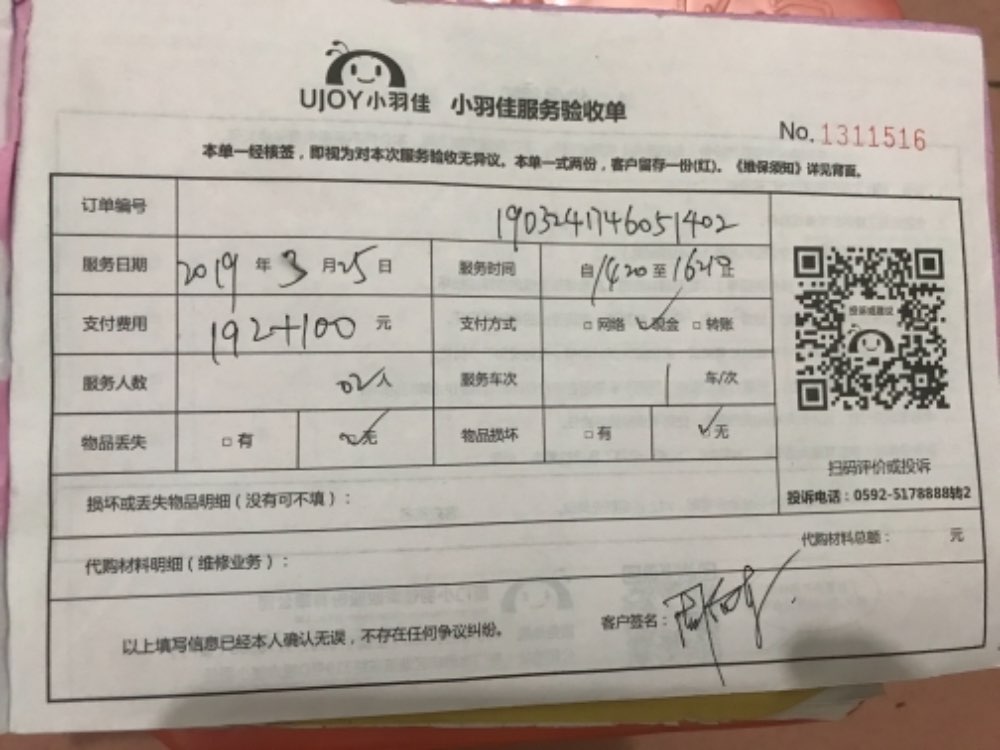 UJOY小羽佳 小羽佳服务验收单
No. 1311516
本单一经核签，即视为对本次服务验收无异议。本单一式两份，客户留存一份(红)。《维保须知》详见背面。
订单编号 1903241746051402
服务日期 2019 年 3 月 25 日 服务时间 自 1420 至 1620 止
支付费用 192+100 元 支付方式 □ 网络 ✓现金 □ 转账
服务人数 02人 服务车次 1 车/次
物品丢失 □ 有 ✓无 物品损坏 □ 有 ✓无
投诉或建议
扫码评价或投诉
投诉电话：0592-5178888转2
损坏或丢失物品明细（没有可不填）：
代购材料明细（维修业务）：
代购材料总额： 元
以上填写信息已经本人确认无误，不存在任何争议纠纷。
客户签名：